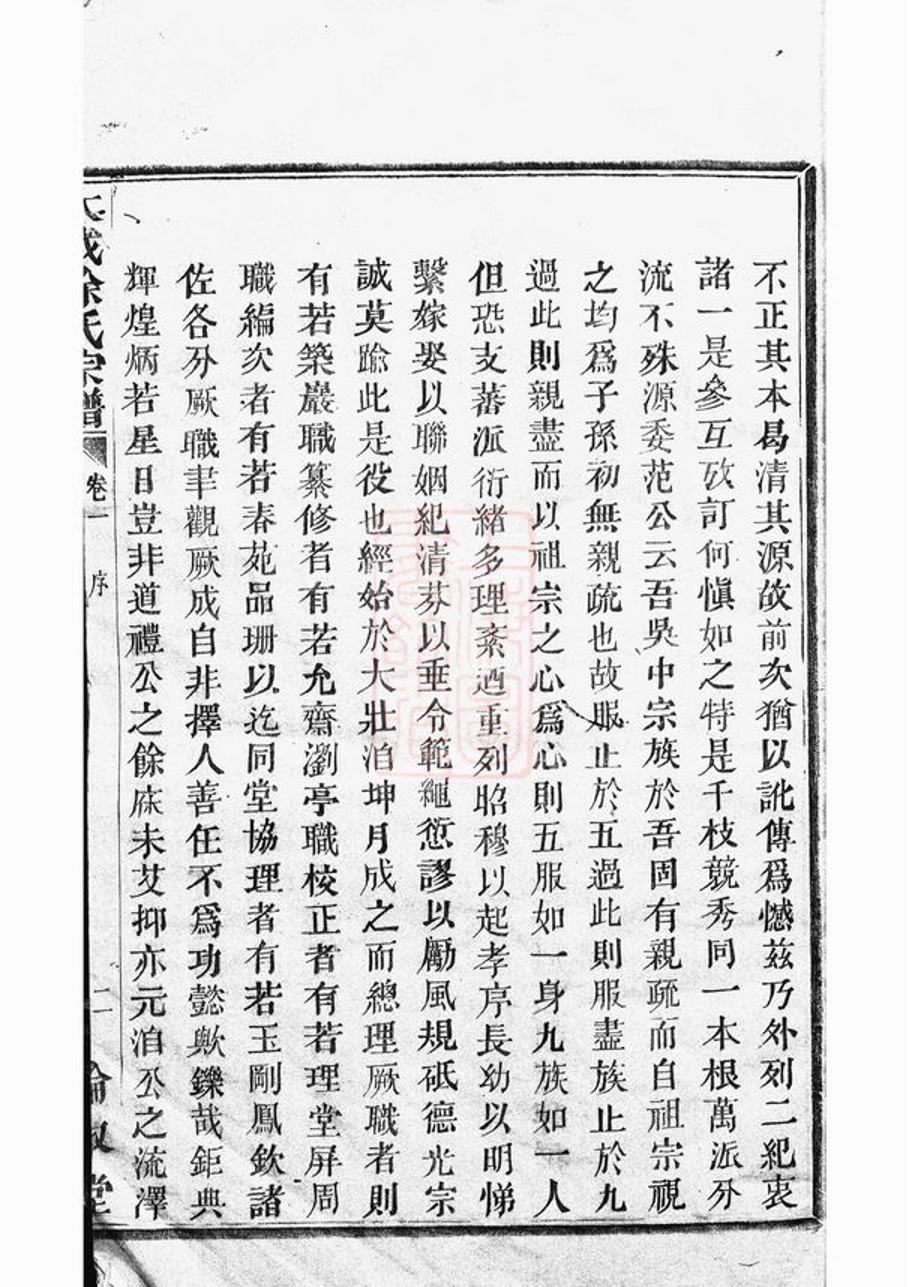 不正其本曷清其源故前次猶以訛傳爲憾茲乃外列二紀衷
諸一是參互攷訂何愼如之特是千枝競秀同一本根萬派分
流不殊源委范公云吾吳中宗族於吾固有親疏而自祖宗視
之均爲子孫初無親疏也故服止於五過此則服盡族止於九
過此則親盡而以祖宗之心爲心則五服如一身九族如一人
但恐支蕃派衍緒多理紊迺重列昭穆以起孝序長幼以明悌
繫嫁娶以聯姻紀清芬以垂令範繩愆謬以勵風規砥德光宗
誠莫踰此是役也經始於大壯洎坤月成之而總理厥職者則
有若築巖職纂修者有若允齋瀏亭職校正者有若理堂屏周
職編次者有若春苑品珊以迄同堂協理者有若玉剛鳳欽諸
佐各分厥職聿觀厥成自非擇人善任不爲功懿歟鑠哉鉅典
輝煌炳若星日豈非道禮公之餘庥未艾抑亦元洎公之流澤
成徐氏宗譜 卷一 序 二 堂